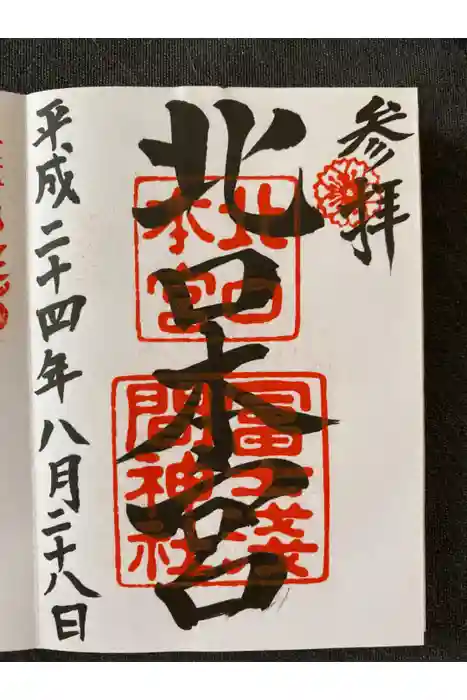 参拝
北口本宮
北口本宮
冨士浅間神社
平成二十四年八月二十八日